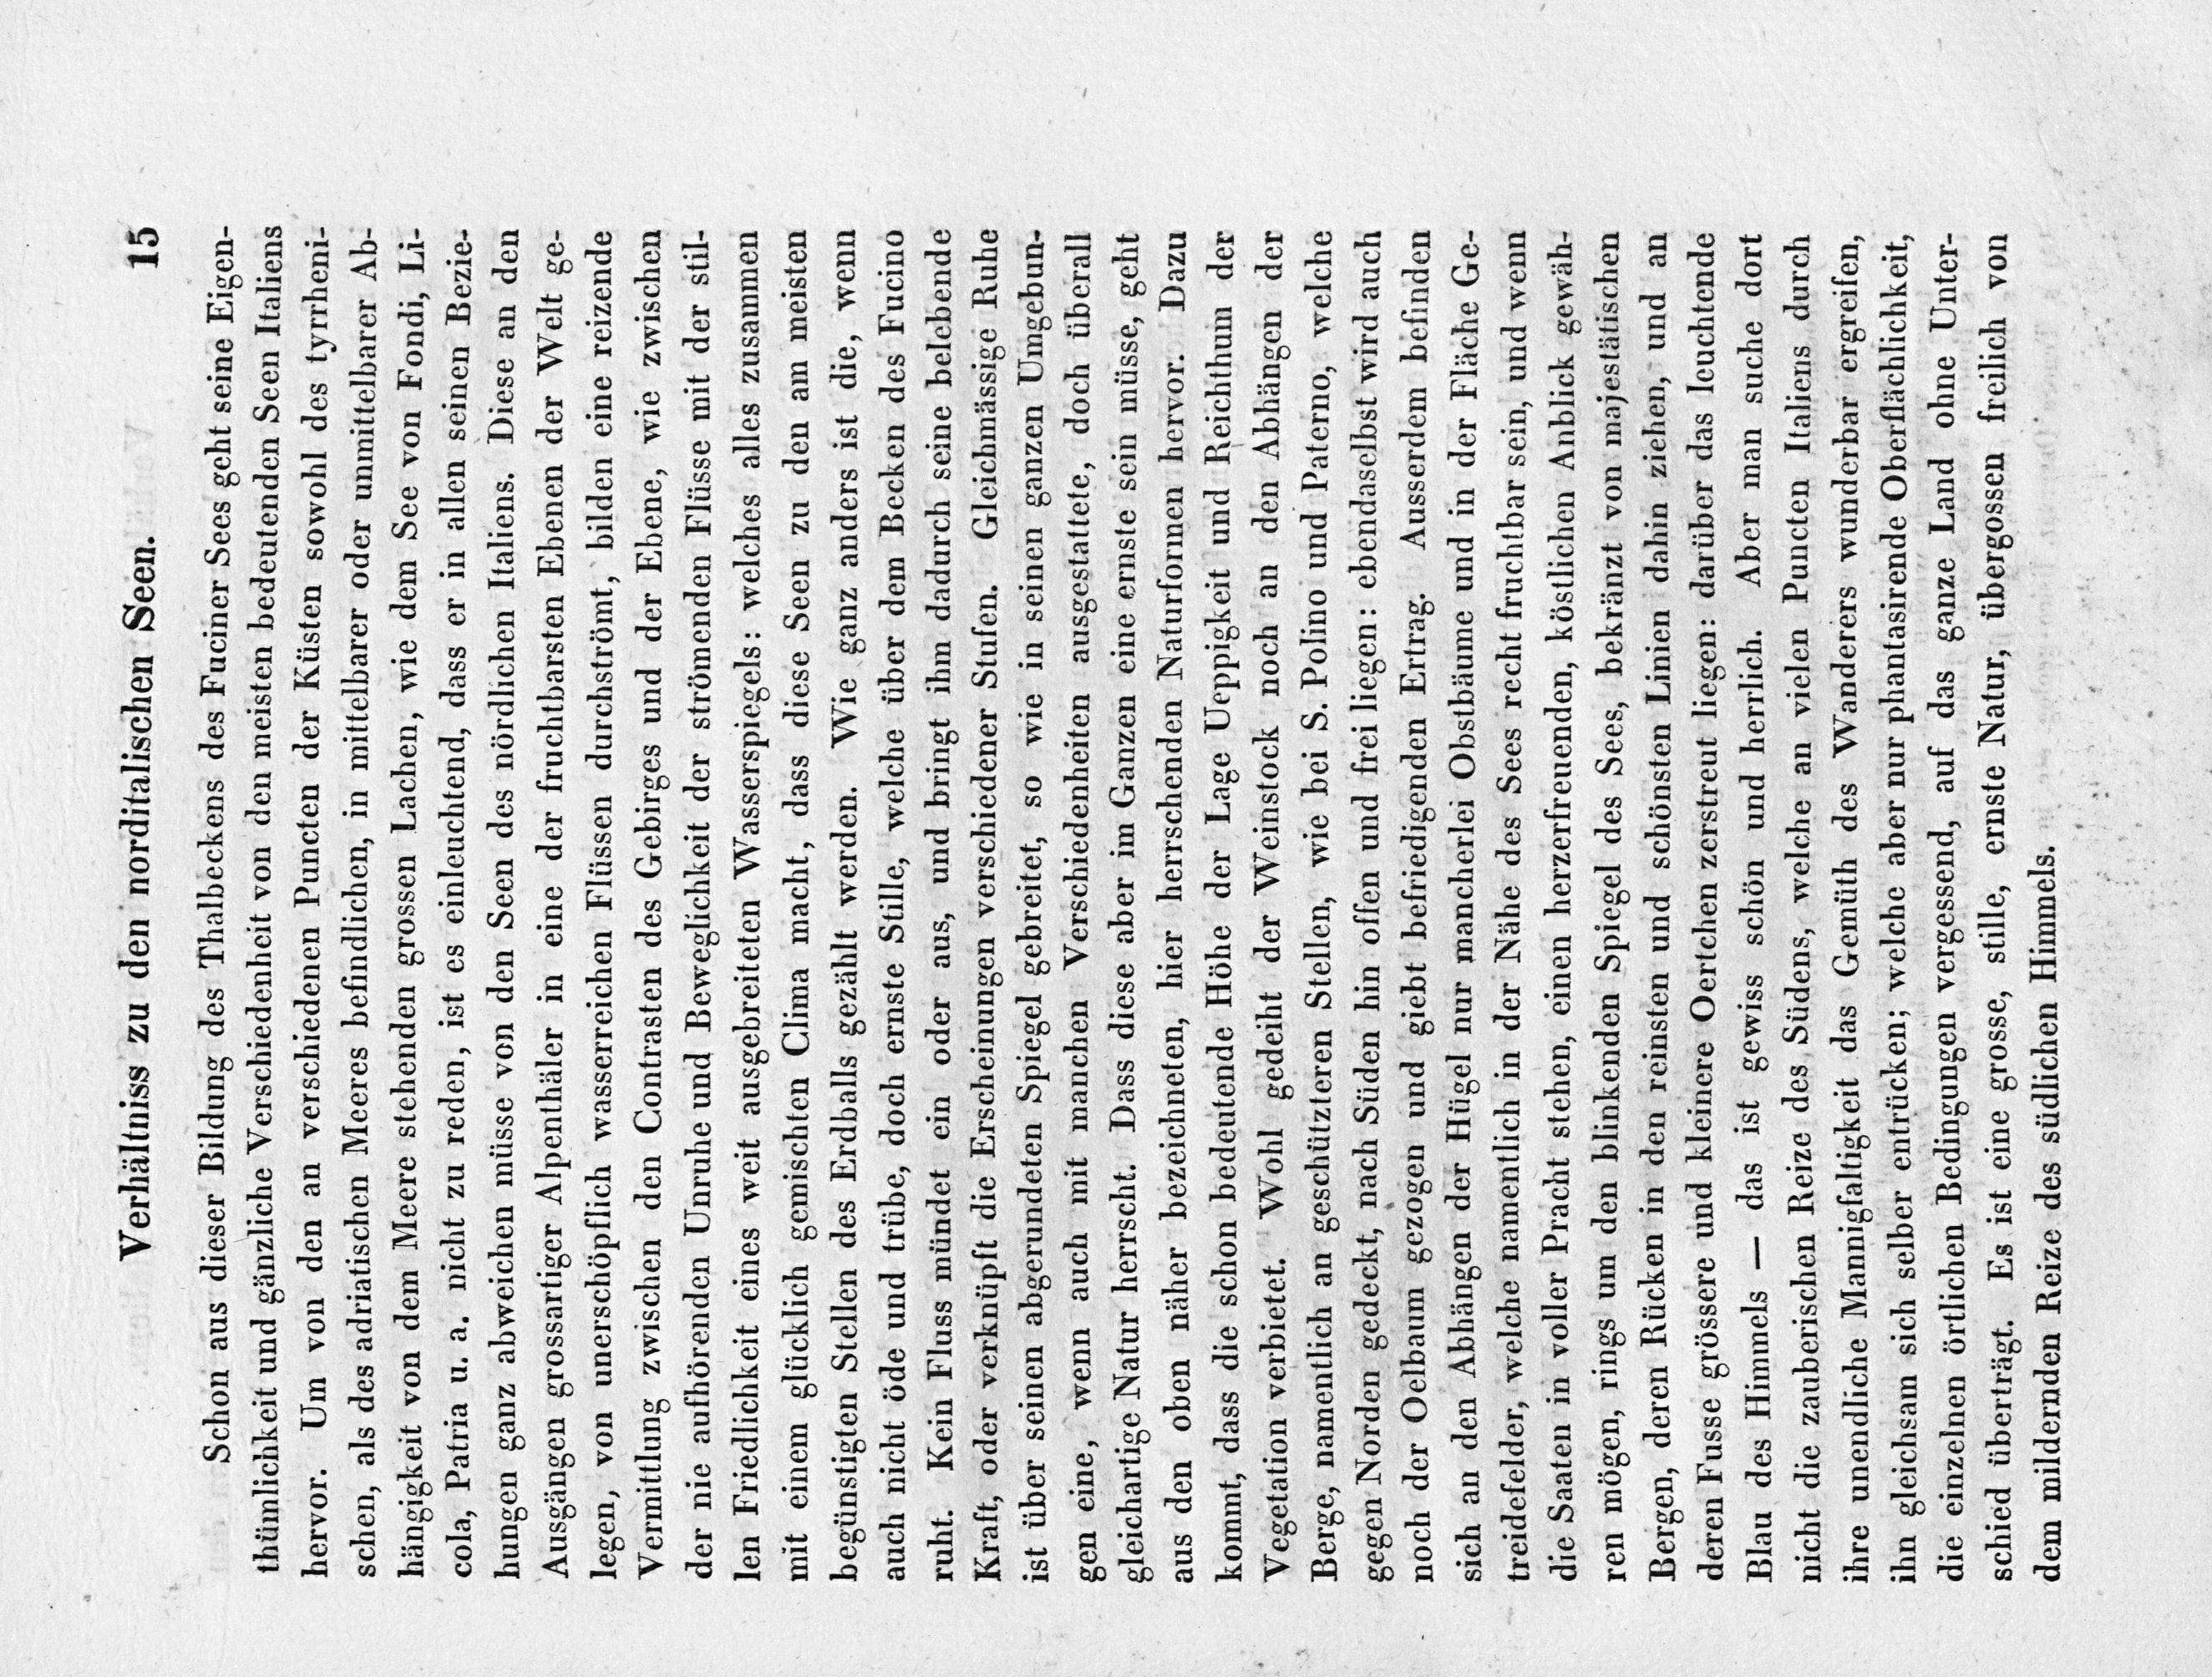 Verhältniss zu den norditalischen Seen. 15
Schon aus dieser Bildung des Thalbeckens des Fuciner Sees geht seine Eigen-
thümlichkeit und gänzliche Verschiedenheit von den meisten bedeutenden Seen Italiens
hervor. Um von den an verschiedenen Puncten der Küsten sowohl des tyrrheni-
schen, als des adriatischen Meeres befindlichen, in mittelbarer oder unmittelbarer Ab-
hängigkeit von dem Meere stehenden grossen Lachen, wie dem See von Fondi, Li-
cola, Patria u. a. nicht zu reden, ist es einleuchtend, dass er in allen seinen Bezie-
hungen ganz abweichen müsse von den Seen des nördlichen Italiens. Diese an den
Ausgängen grossartiger Alpenthäler in eine der fruchtbarsten Ebenen der Welt ge-
legen, von unerschöpflich wasserreichen Flüssen durchströmt, bilden eine reizende
Vermittlung zwischen den Contrasten des Gebirges und der Ebene, wie zwischen
der nie aufhörenden Unruhe und Beweglichkeit der strömenden Flüsse mit der stil-
len Friedlichkeit eines weit ausgebreiteten Wasserspiegels: welches alles zusammen
mit einem glücklich gemischten Clima macht, dass diese Seen zu den am meisten
begünstigten Stellen des Erdballs gezählt werden. Wie ganz anders ist die, wenn
auch nicht öde und trübe, doch ernste Stille, welche über dem Becken des Fucino
ruht. Kein Fluss mündet ein oder aus, und bringt ihm dadurch seine belebende
Kraft, oder verknüpft die Erscheinungen verschiedener Stufen. Gleichmässige Ruhe
ist über seinen abgerundeten Spiegel gebreitet, so wie in seinen ganzen Umgebun-
gen eine, wenn auch mit manchen Verschiedenheiten ausgestattete, doch überall
gleichartige Natur herrscht. Dass diese aber im Ganzen eine ernste sein müsse, geht
aus den oben näher bezeichneten, hier herrschenden Naturformen hervor. Dazu
kommt, dass die schon bedeutende Höhe der Lage Ueppigkeit und Reichthum der
Vegetation verbietet. Wohl gedeiht der Weinstock noch an den Abhängen der
Berge, namentlich an geschützteren Stellen, wie bei S. Polino und Paterno, welche
gegen Norden gedeckt, nach Süden hin offen und frei liegen: ebendaselbst wird auch
noch der Oelbaum gezogen und giebt befriedigenden Ertrag. Ausserdem befinden
sich an den Abhängen der Hügel nur mancherlei Obstbäume und in der Fläche Ge-
treidefelder, welche namentlich in der Nähe des Sees recht fruchtbar sein, und wenn
die Saaten in voller Pracht stehen, einen herzerfreuenden, köstlichen Anblick gewäh-
ren mögen, rings um den blinkenden Spiegel des Sees, bekränzt von majestätischen
Bergen, deren Rücken in den reinsten und schönsten Linien dahin ziehen, und an
deren Fusse grössere und kleinere Oertchen zerstreut liegen: darüber das leuchtende
Blau des Himmels — das ist gewiss schön und herrlich. Aber man suche dort
nicht die zauberischen Reize des Südens, welche an vielen Puncten Italiens durch
ihre unendliche Mannigfaltigkeit das Gemüth des Wanderers wunderbar ergreifen,
ihn gleichsam sich selber entrücken; welche aber nur phantasirende Oberflächlichkeit,
die einzelnen örtlichen Bedingungen vergessend, auf das ganze Land ohne Unter-
schied überträgt. Es ist eine grosse, stille, ernste Natur, übergossen freilich von
dem mildernden Reize des südlichen Himmels.